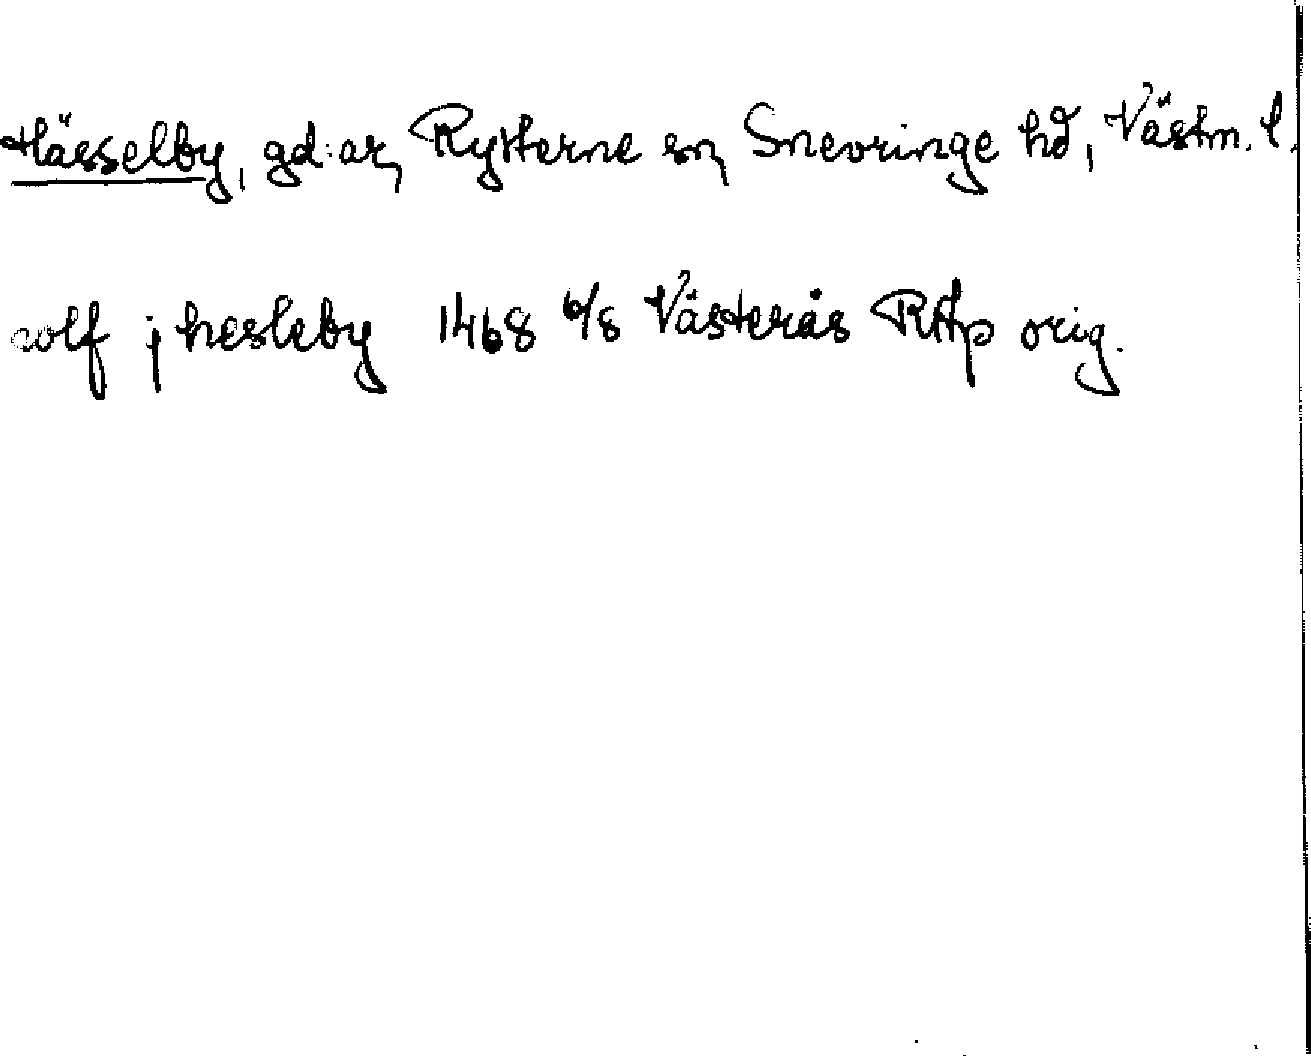 Hässelby, gd:ar, Rytterne sn, Snevringe hd, Västm. l.
rolf j hesleby 1468 6/8 Västerås RAp orig.